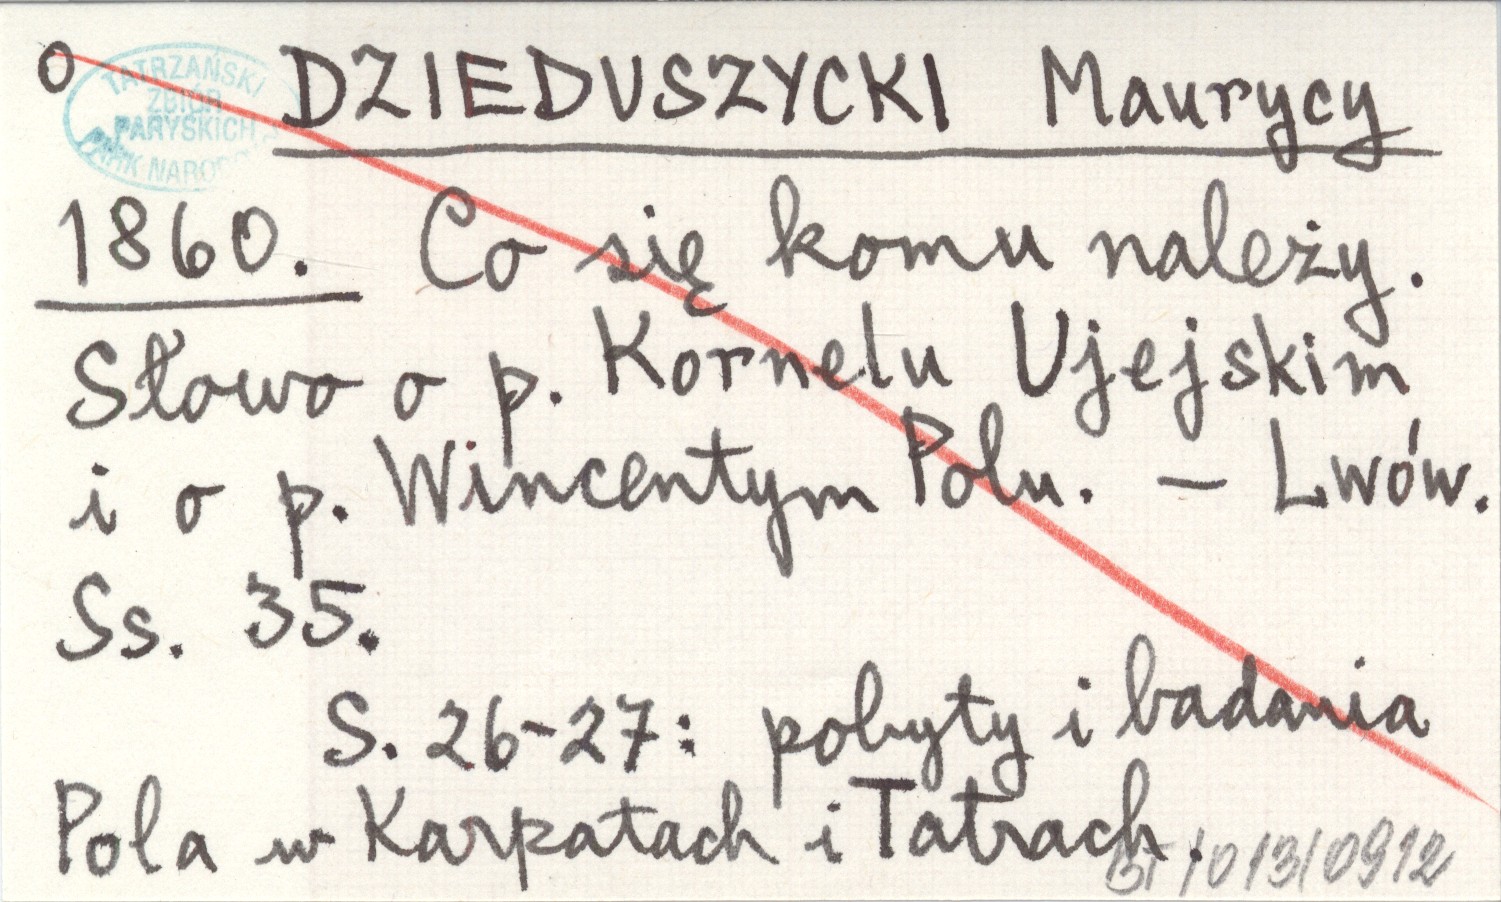 o DZIEDUSZYCKI Maurycy
TATRZAŃSKI
ZBIÓR
PARYSKICH
PARK NARODO
1860. Co się komu należy.
Słowo o p. Kornelu Ujejskim
i o p. Wincentym Polu. — Lwów.
Ss. 35.
S. 26-27: pobyty i badania
Pola w Karpatach i Tatrach.
BT/013/0912